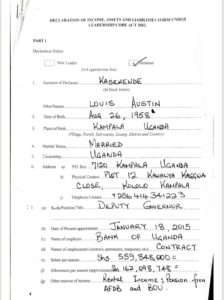 DECLARATION OF INCOME, ASSETS AND LIABILITIES FORM UNDER
LEADERSHIP CODE ACT 2002.
PART I
Declaration Status:
New Leader
(tick appropriate box)
1. Surname of Declarant KASEKENDE
(In block letters)
Other Names LOUIS AUSTIN
2. Date of Birth AUG 26, 1958
3. Place of Birth KAMPALA UGANDA
(Village, Parish, Sub-county, County, District and Country)
4. Marital Status MARRIED
5. Citizenship UGANDA
6. Address: a) P.O. Box 7120 KAMPALA UGANDA
b) Physical Contact PLOT 12
CLOSE, KOLOLO KAMPALA
c) Telephone Contact
7. Rank/Position/Title: DEPUTY GOVERNOR
a) Date of Present appointment JANUARY 18, 2015
b) Name of employer BANK OF UGANDA
c) Nature of employment CONTRACT
d) Salary per annum Shs 559,848,000
e) Allowances per annum
f) Other sources of income Rental Income; Pension from
AFDB and BOU